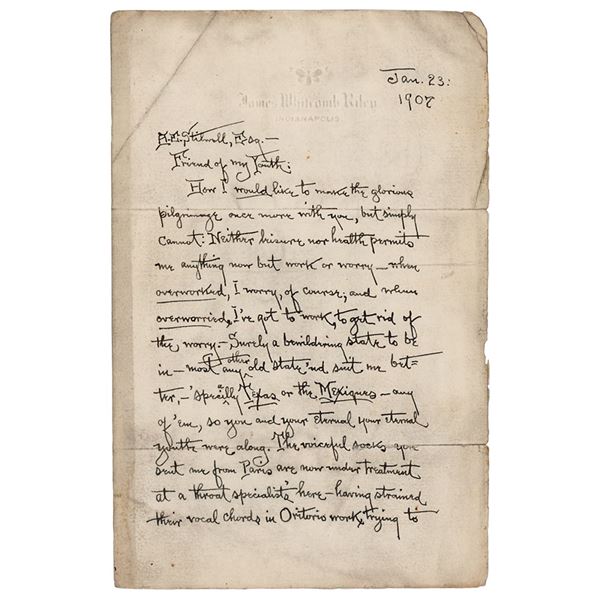 James Whitcomb Riley
INDIANAPOLIS
Jan. 23:
1907
A.E. Stilwell, Esq.—
Friend of my Youth:
How I would like to make the glorious
pilgrimage once more with you, but simply
cannot: Neither leisure nor health permits
me anything now but work or worry—when
overworked, I worry, of course; and when
overworried, I've got to work, to get rid of
the worry.—Surely a bewildring state to be
in—most any other old state 'nd suit me bet=
ter,—'specially Texas or the Mexiques—any
of 'em, so you and your eternal your eternal
youth were along. The voiceful socks you
sent me from Paris are now under treatment
at a throat specialist's here—having strained
their vocal chords in Oritorio work, trying to